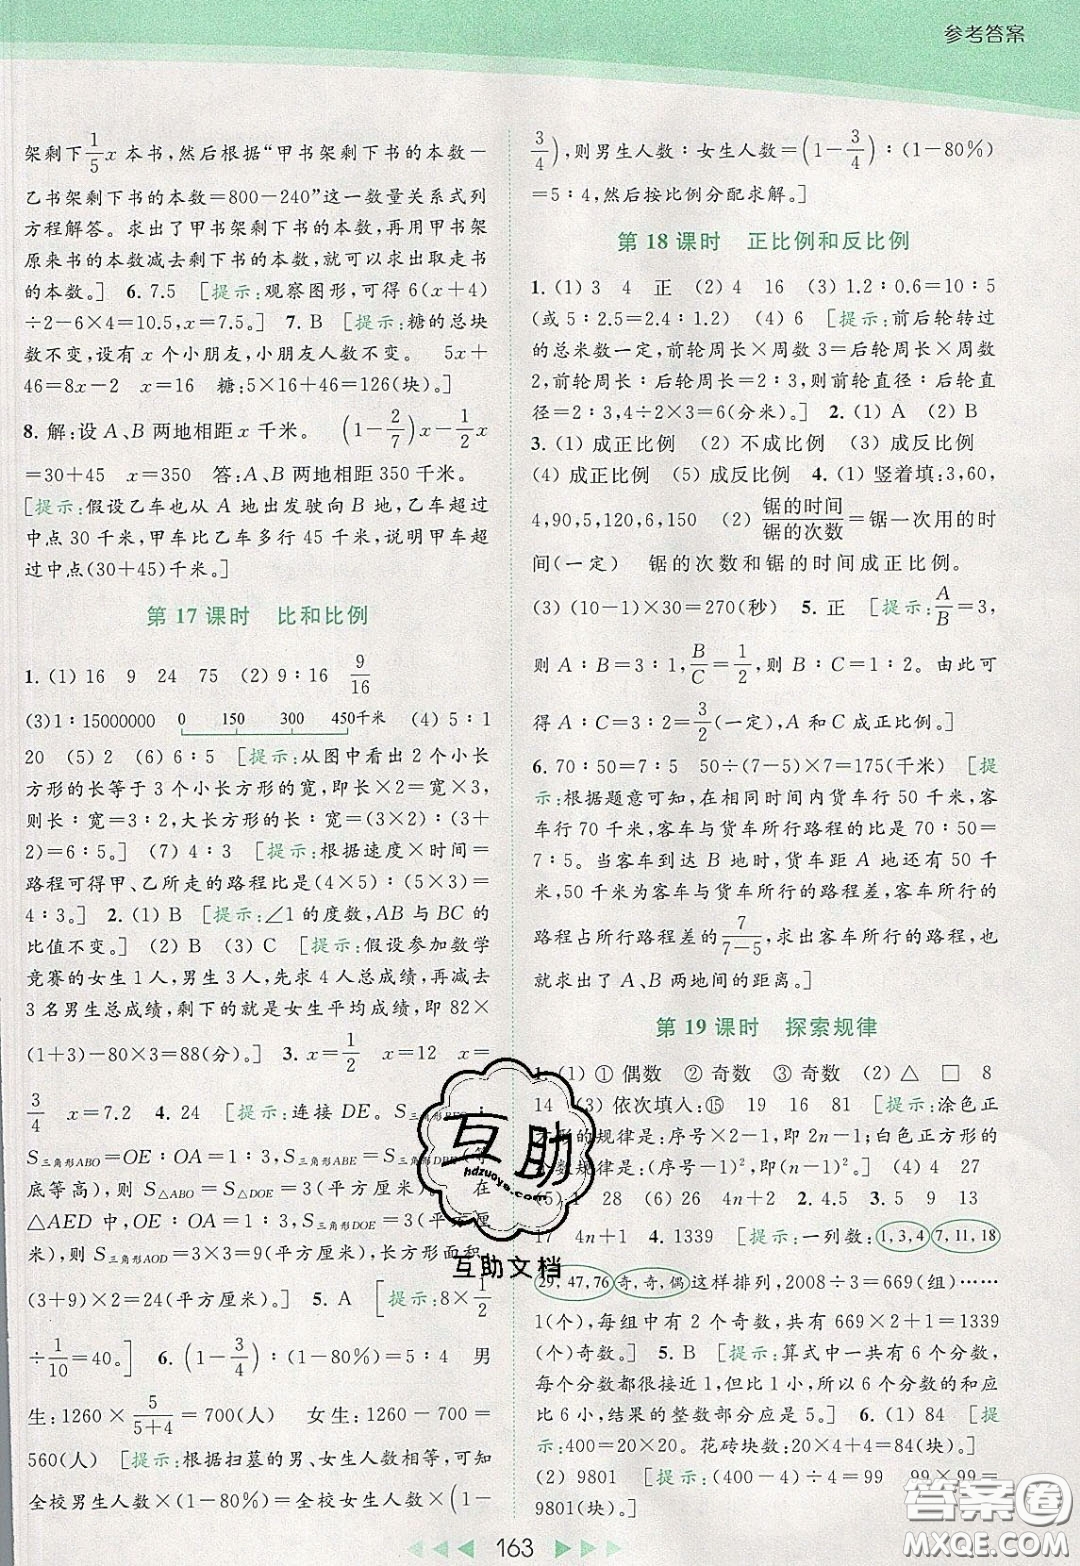 参考答案
架剩下1/5 x本书,然后根据“甲书架剩下书的本数−
乙书架剩下书的本数=800−240”这一数量关系式列
方程解答。求出了甲书架剩下书的本数,再用甲书架
原来书的本数减去剩下书的本数,就可以求出取走书
的本数。] 6. 7.5 [提示:观察图形,可得6(x+4)
÷2−6×4=10.5,x=7.5。] 7. B [提示:糖的总块
数不变,设有x个小朋友,小朋友人数不变。 5x+
46=8x−2 x=16 糖:5×16+46=126(块)。]
8. 解:设A、B两地相距x千米。 (1−2/7)x−1/2 x
=30+45 x=350 答:A、B两地相距350千米。
[提示:假设乙车也从A地出发驶向B地,乙车超过
中点30千米,甲车比乙车多行45千米,说明甲车超
过中点(30+45)千米。]
第17课时 比和比例
1. (1) 16 9 24 75 (2) 9∶16 9/16
(3)1∶15000000 0 150 300 450千米 (4) 5∶1
20 (5) 2 (6) 6∶5 [提示:从图中看出2个小长
方形的长等于3个小长方形的宽,即长×2=宽×3,
则长∶宽=3∶2,大长方形的长∶宽=(3×2)∶(3+
2)=6∶5。] (7) 4∶3 [提示:根据速度×时间=
路程可得甲、乙所走的路程比是(4×5)∶(3×5)=
4∶3。] 2. (1) B [提示:∠1的度数,AB与BC的
比值不变。] (2) B (3) C [提示:假设参加数学
竞赛的女生1人,男生3人,先求4人总成绩,再减去
3名男生总成绩,剩下的就是女生平均成绩,即82×
(1+3)−80×3=88(分)。] 3. x=1/2 x=12 x=
3/4 x=7.2 4. 24 [提示:连接DE。S三角形
S三角形ABO=OE∶OA=1∶3,S三角形ABE=S三角形
底等高),则S△ABO=S△DOE=3(平方厘米)。 在
△AED中,OE∶OA=1∶3,S三角形DOE=3(平方厘
米),则S三角形AOD=3×3=9(平方厘米),长方形面积
(3+9)×2=24(平方厘米)。] 5. A [提示:8×1/2
÷1/10=40。] 6. (1−3/4)∶(1−80%)=5∶4 男
生:1260×5/(5+4)=700(人) 女生:1260−700=
560(人) [提示:根据扫墓的男、女生人数相等,可知
全校男生人数×(1−80%)=全校女生人数×(1−
3/4),则男生人数∶女生人数=(1−3/4)∶(1−80%)
=5∶4,然后按比例分配求解。]
第18课时 正比例和反比例
1. (1) 3 4 正 (2) 4 16 (3) 1.2∶0.6=10∶5
(或5∶2.5=2.4∶1.2) (4) 6 [提示:前后轮转过
的总米数一定,前轮周长×周数3=后轮周长×周数
2,前轮周长∶后轮周长=2∶3,则前轮直径∶后轮直
径=2∶3,4÷2×3=6(分米)。] 2. (1) A (2) B
3. (1) 成正比例 (2) 不成比例 (3) 成反比例
(4) 成正比例 (5) 成反比例 4. (1) 竖着填:3,60,
4,90,5,120,6,150 (2) 锯的时间/锯的次数=锯一次用的时
间(一定) 锯的次数和锯的时间成正比例。
(3) (10−1)×30=270(秒) 5. 正 [提示:A/B=3,
则A∶B=3∶1,B/C=1/2,则B∶C=1∶2。由此可
得A∶C=3∶2=3/2(一定),A和C成正比例。]
6. 70∶50=7∶5 50÷(7−5)×7=175(千米) [提
示:根据题意可知,在相同时间内货车行50千米,客
车行70千米,客车与货车所行路程的比是70∶50=
7∶5。当客车到达B地时,货车距A地还有50千
米,50千米为客车与货车所行的路程差,客车所行的
路程占所行路程差的7/(7−5),求出客车所行的路程,也
就求出了A、B两地间的距离。]
第19课时 探索规律
1. (1) ① 偶数 ② 奇数 ③ 奇数 (2) △ □ 8
14 (3) 依次填入:⑮ 19 16 81 [提示:涂色正
方形的规律是:序号×2−1,即2n−1;白色正方形的
个数规律是:(序号−1)²,即(n−1)²。] (4) 4 27
(5) 1 28 (6) 26 4n+2 2. 4.5 3. 5 9 13
17 4n+1 4. 1339 [提示:一列数:1,3,4 7,11,18
29,47,76 奇,奇,偶 这样排列,2008÷3=669(组)……
1(个),每组中有2个奇数,共有669×2+1=1339
(个)奇数。] 5. B [提示:算式中一共有6个分数,
每个分数都很接近1,但比1小,所以6个分数的和应
比6小,结果的整数部分应是5。] 6. (1) 84 [提
示:400=20×20。花砖块数:20×4+4=84(块)。]
(2) 9801 [提示:(400−4)÷4=99 99×99=
9801(块)。]
163
互助
hdzuoye.com
互助文档
答案圈
MXQE.COM